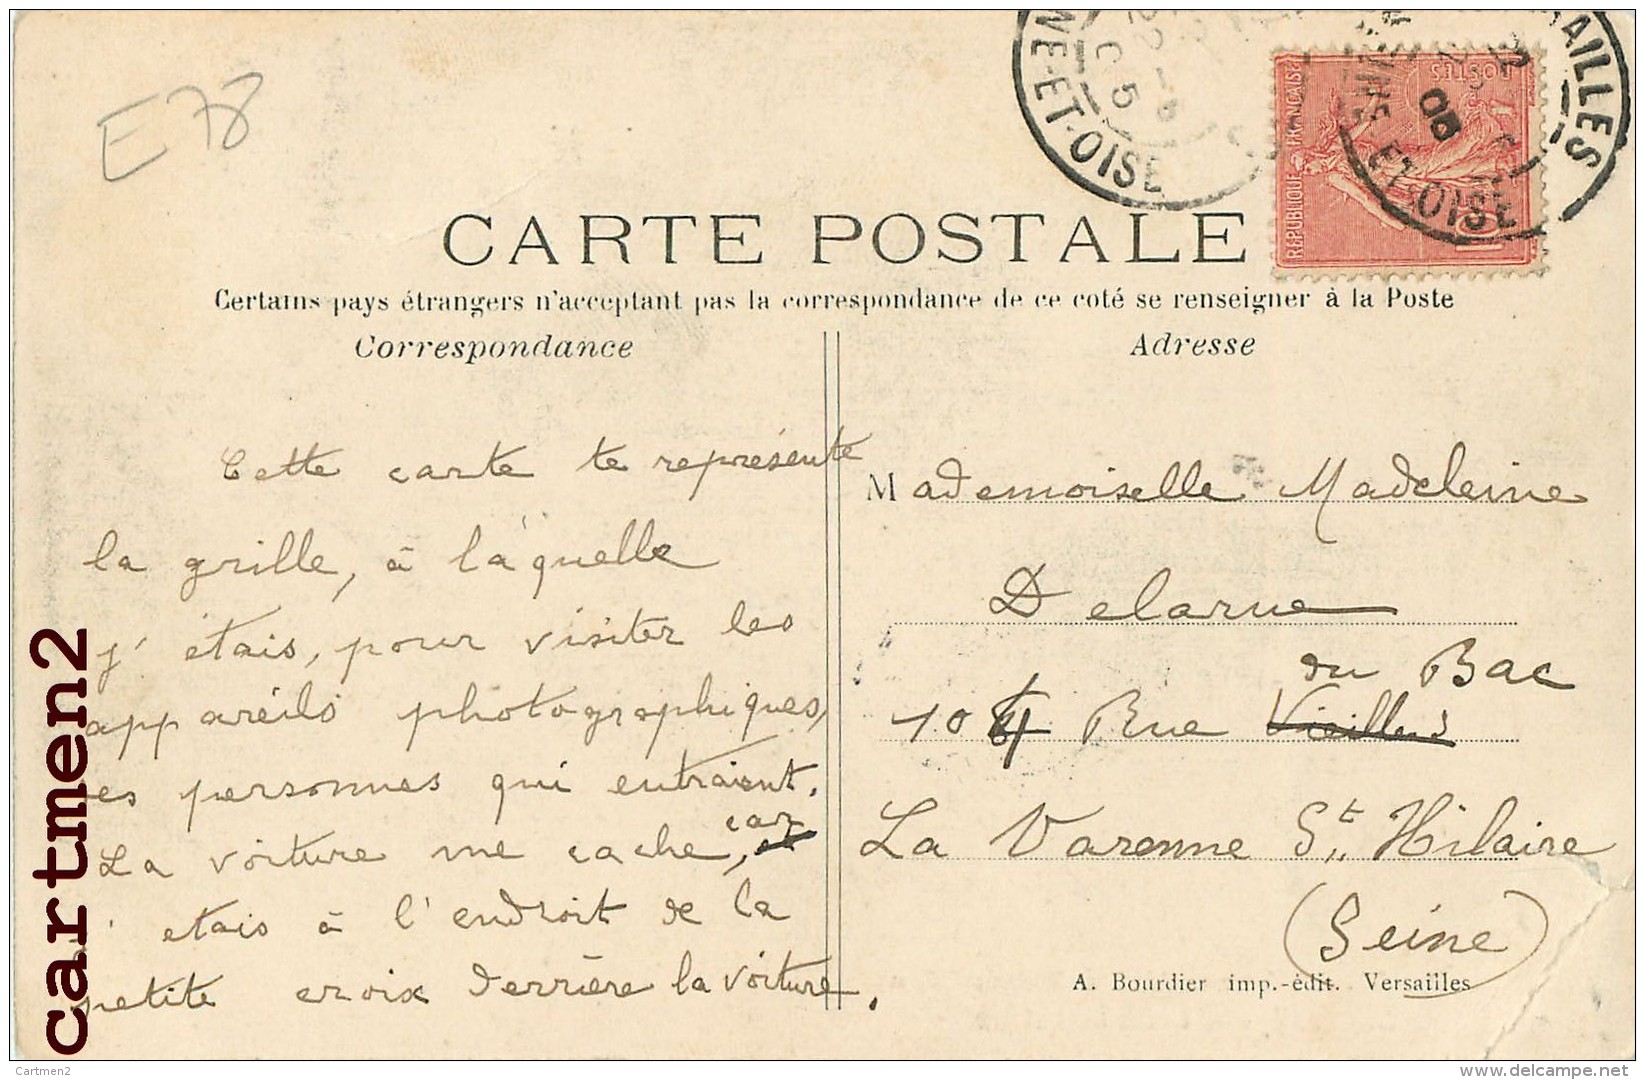 E78
NE-ET-OISE
AILLES
ET-OISE
POSTES
REPUBLIQUE FRANÇAISE
10
CARTE POSTALE
Certains pays étrangers n'acceptant pas la correspondance de ce coté se renseigner à la Poste
Correspondance
Cette carte te représente
la grille, à laquelle
j'étais, pour visiter les
appareils photographiques,
es personnes qui entraient.
La voiture me cache, car
j'etais à l'endroit de la
petite croix derrière la voiture.
Adresse
Mademoiselle Madeleine
Delarue
du Bac
104 Rue Vieilles
La Varenne St. Hilaire
(Seine)
A. Bourdier imp.-édit. Versailles
cartmen2
Cartmen2
delcampe.net